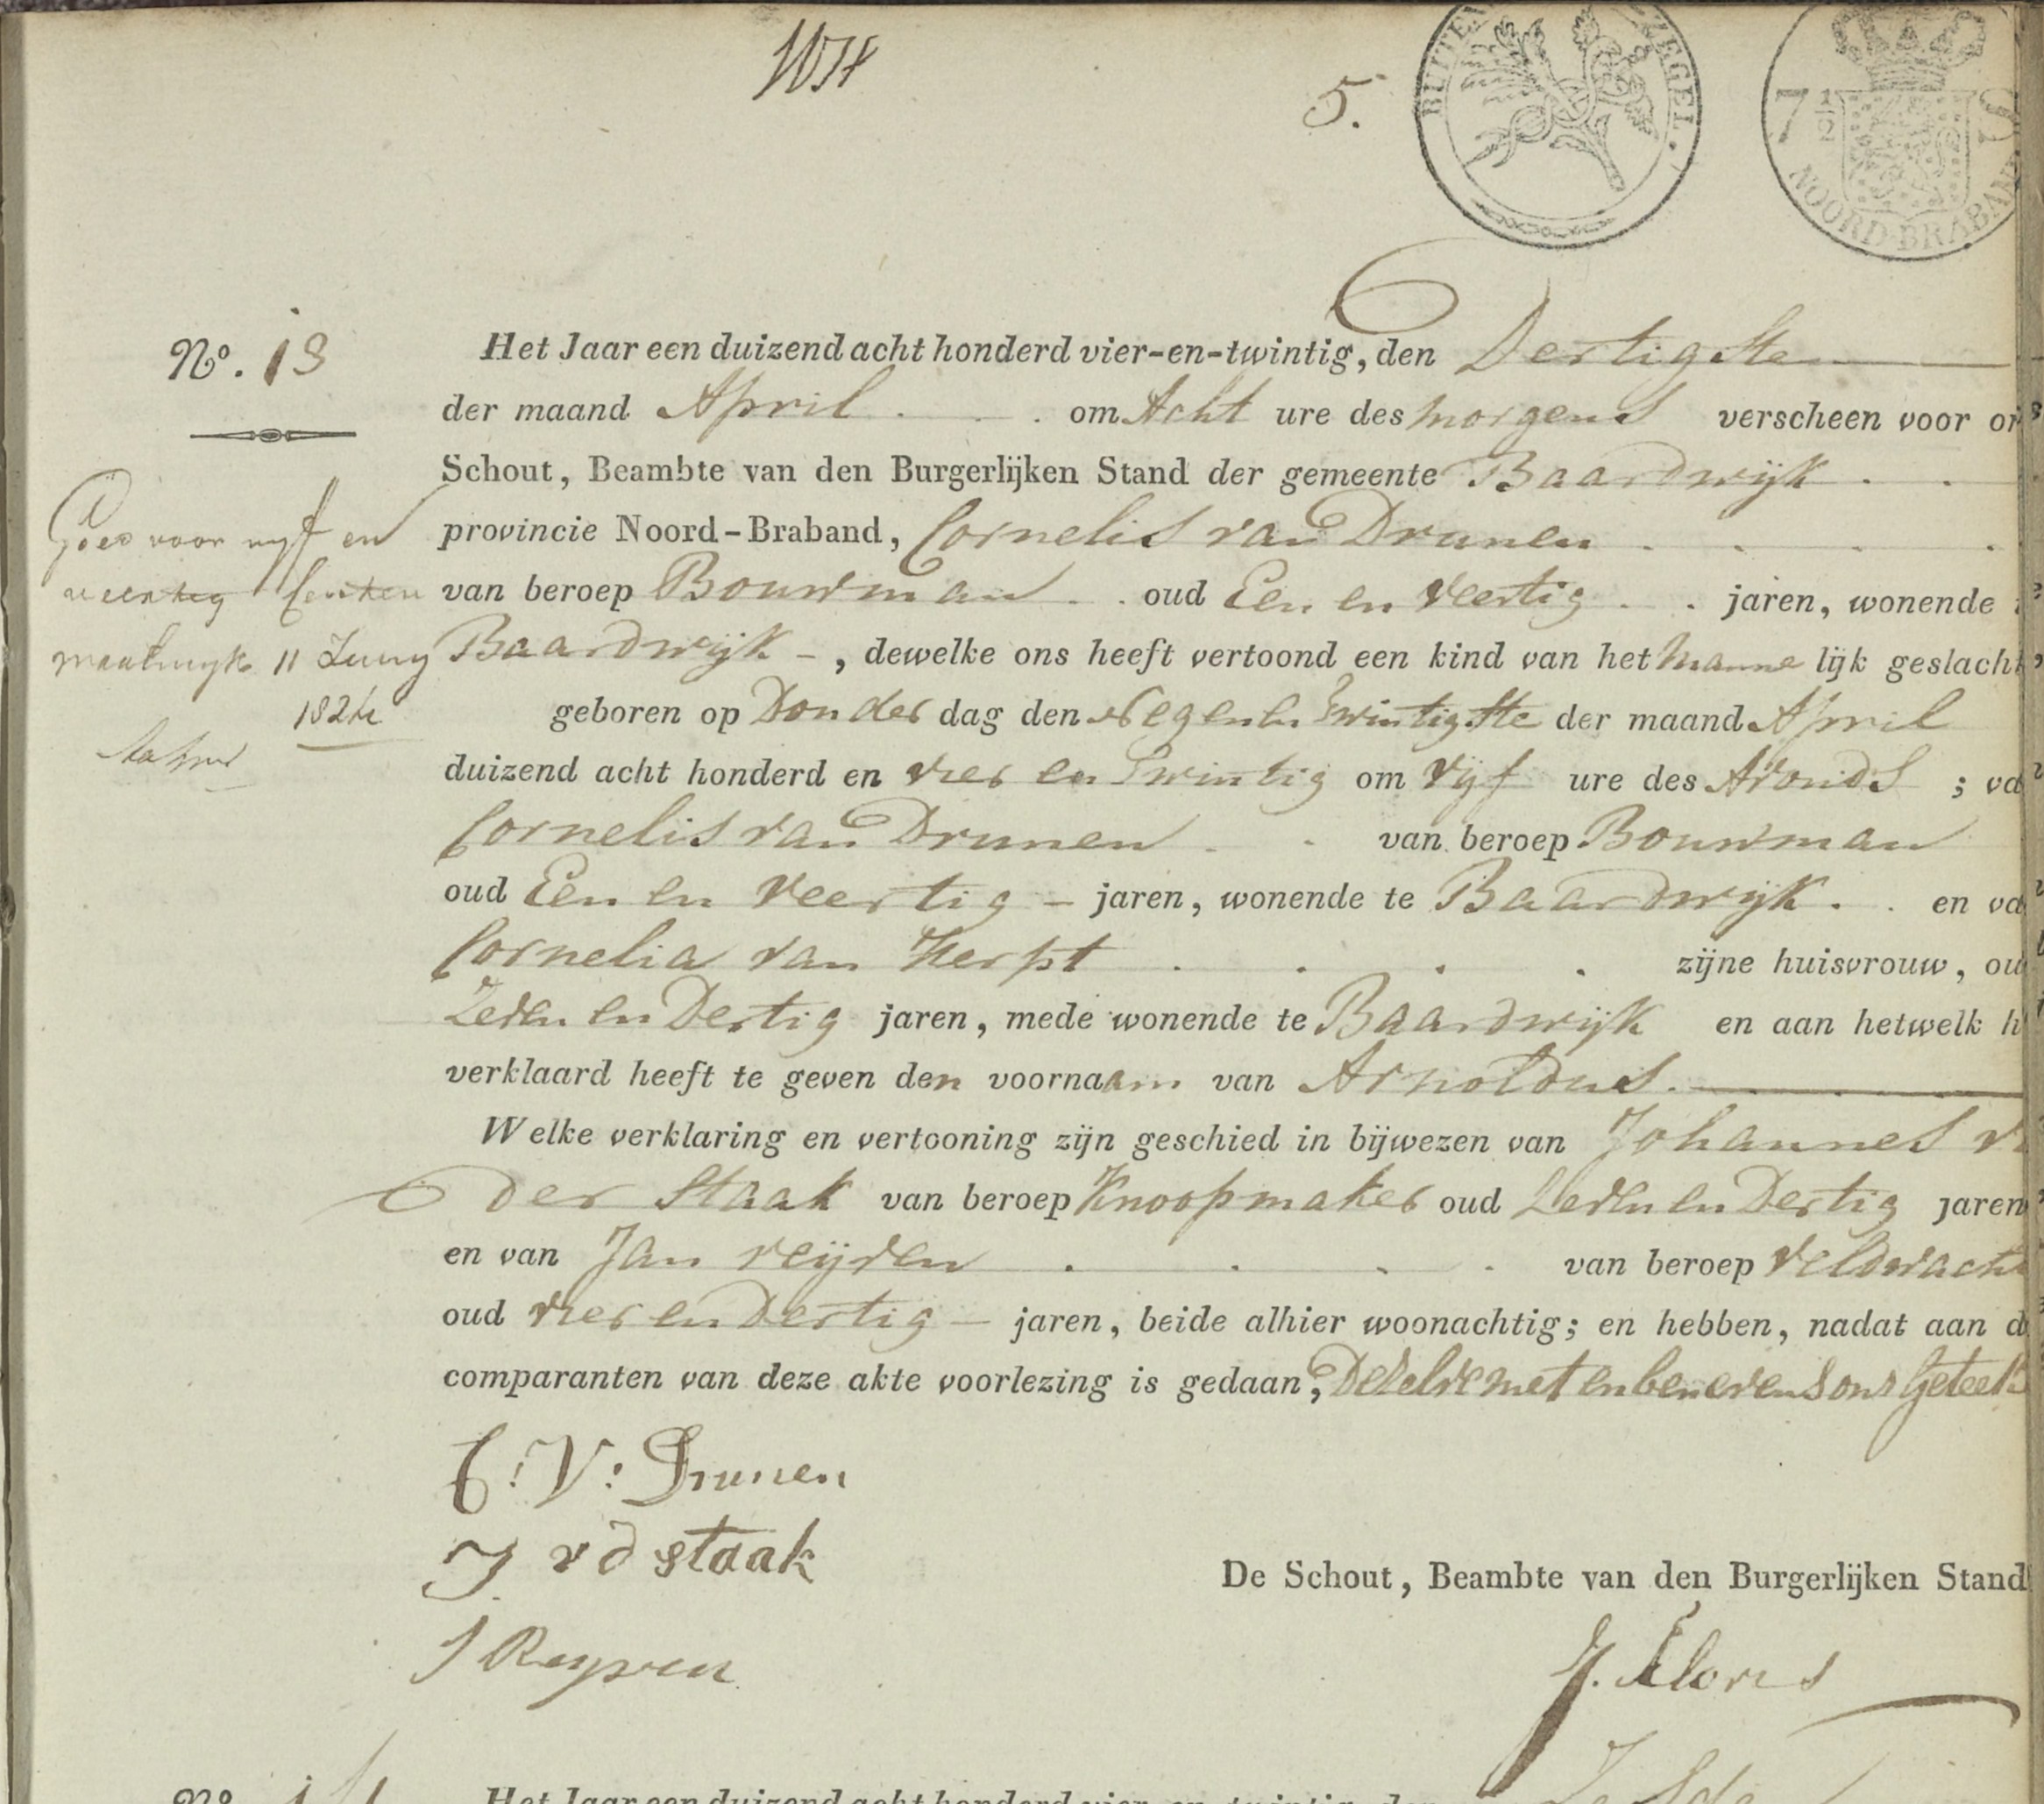 5.
BUITEN ZEGEL.
7 1/2 S
NOORD-BRABAN
No. 13
Het Jaar een duizend acht honderd vier-en-twintig, den Dertigste
der maand April om Acht ure des morgens verscheen voor on
Schout, Beambte van den Burgerlijken Stand der gemeente Baardwijk
provincie Noord-Braband, Cornelis van Drunen
van beroep Bouwman oud Een en Veertig jaren, wonende
Baardwijk, dewelke ons heeft vertoond een kind van het manne lijk geslacht
geboren op Donder dag den Negen en Twintigste der maand April
duizend acht honderd en vier en Twintig om vyf ure des Avonds ; va
Cornelis van Drunen van beroep Bouwman
oud Een en Veertig jaren, wonende te Baardwijk en va
Cornelia van Herpt zijne huisvrouw, ou
Zeven en Dertig jaren, mede wonende te Baardwijk en aan hetwelk h
verklaard heeft te geven den voornaam van Arnoldus.
Welke verklaring en vertooning zijn geschied in bijwezen van Johannes v
der Staak van beroep Knoopmaker oud Zeven en Dertig jaren
en van Jan reijven van beroep Veldwacht
oud vier en Dertig jaren, beide alhier woonachtig; en hebben, nadat aan d
comparanten van deze akte voorlezing is gedaan, Dezelve met en benevens ons Geteek
Goed voor vyf en
veertig Centen
Waalwyk 11 Juny
1824
C: V: Drunen
J v d staak
J Reyven
De Schout, Beambte van den Burgerlijken Stand
No. 14 Het Jaar een duizend acht honderd vier-en-twintig, den